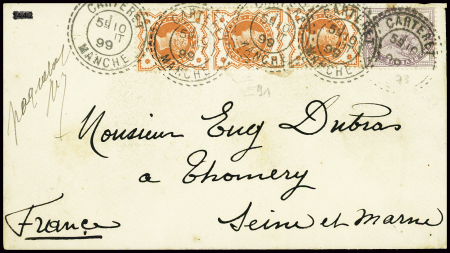 CARTERET
5E 10
99
MANCHE
CARTERET
5E 10
99
MANCHE
CARTERET
5E 10
99
MANCHE
CARTERET
5E 10
99
MANCHE
CARTERET
5E 10
Monsieur Eug Dubras
à Thomery
Seine et Marne
France